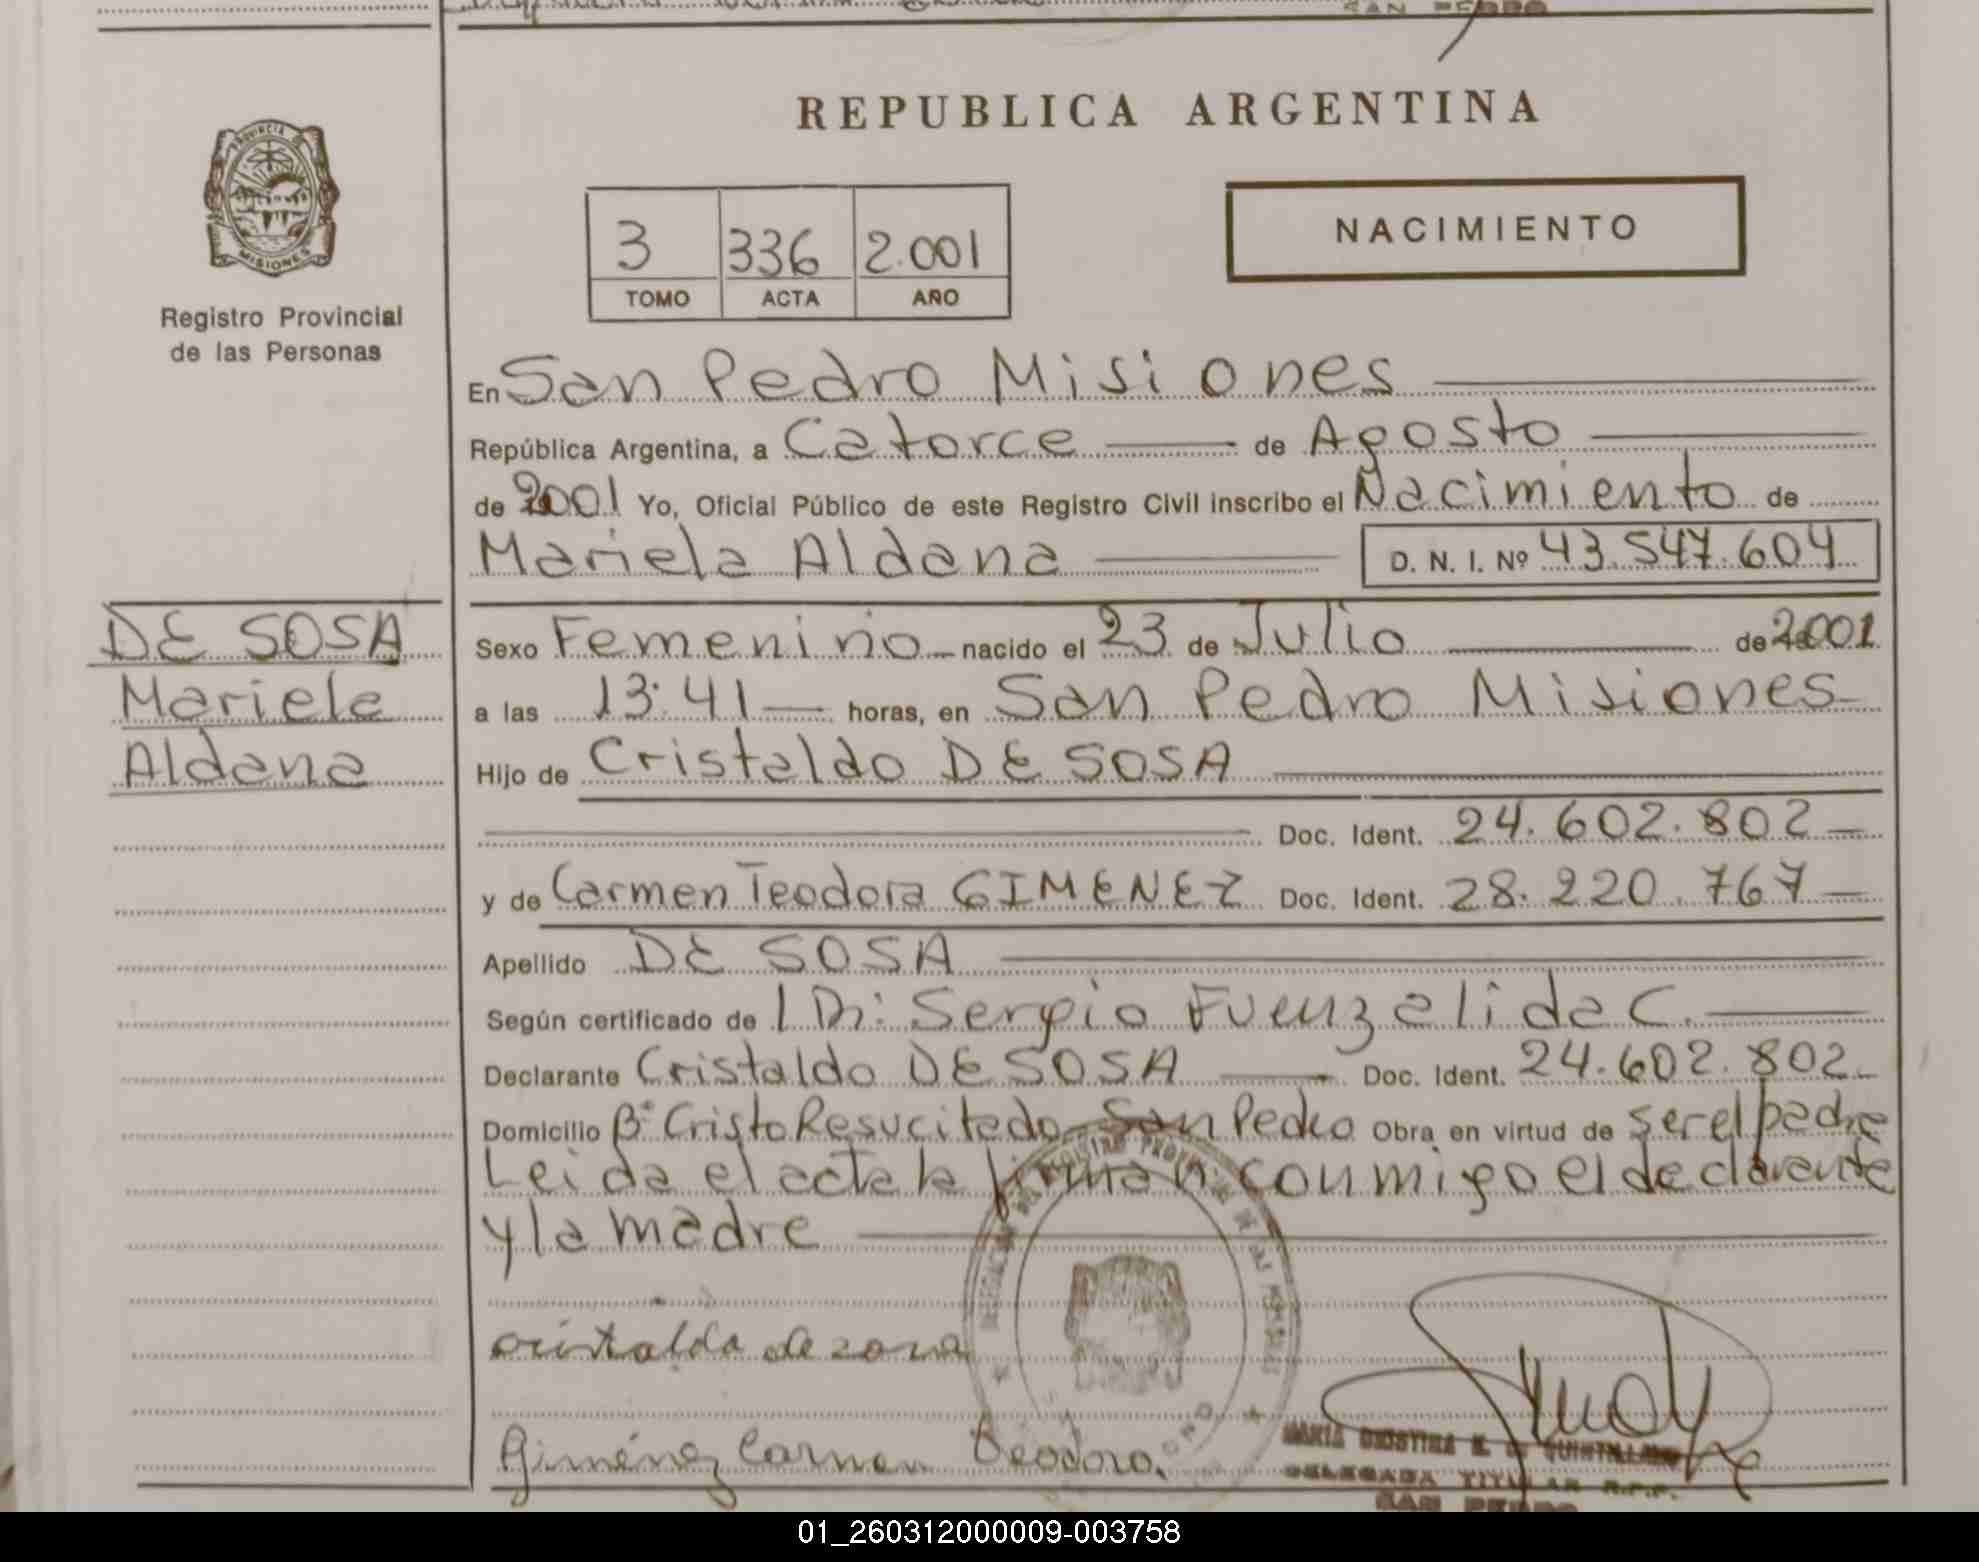 SAN PEDRO
REPUBLICA ARGENTINA
PROVINCIA
MISIONES
Registro Provincial
de las Personas
3 336 2.001
TOMO ACTA AÑO
NACIMIENTO
En San Pedro Misiones
República Argentina, a Catorce de Agosto
de 2001 Yo, Oficial Público de este Registro Civil inscribo el Nacimiento de
Mariela Aldana D. N. I. Nº 43.547.604
DE SOSA
Mariela
Aldana
Sexo Femenino nacido el 23 de Julio de 2001
a las 13:41 horas, en San Pedro Misiones
Hijo de Cristaldo DE SOSA
Doc. Ident. 24.602.802
y de Carmen Teodora GIMENEZ Doc. Ident. 28.220.767
Apellido DE SOSA
Según certificado de 1 Dr: Sergio Fuenzalida C.
Declarante Cristaldo DE SOSA Doc. Ident. 24.602.802
Domicilio Bº Cristo Resucitado San Pedro Obra en virtud de ser el padre
Leida el acta la firman conmigo el declarante
y la madre
cristaldo de sosa
Giménez Carmen Teodora.
DELEGADA TITULAR R.P.P.
SAN PEDRO
01_260312000009-003758